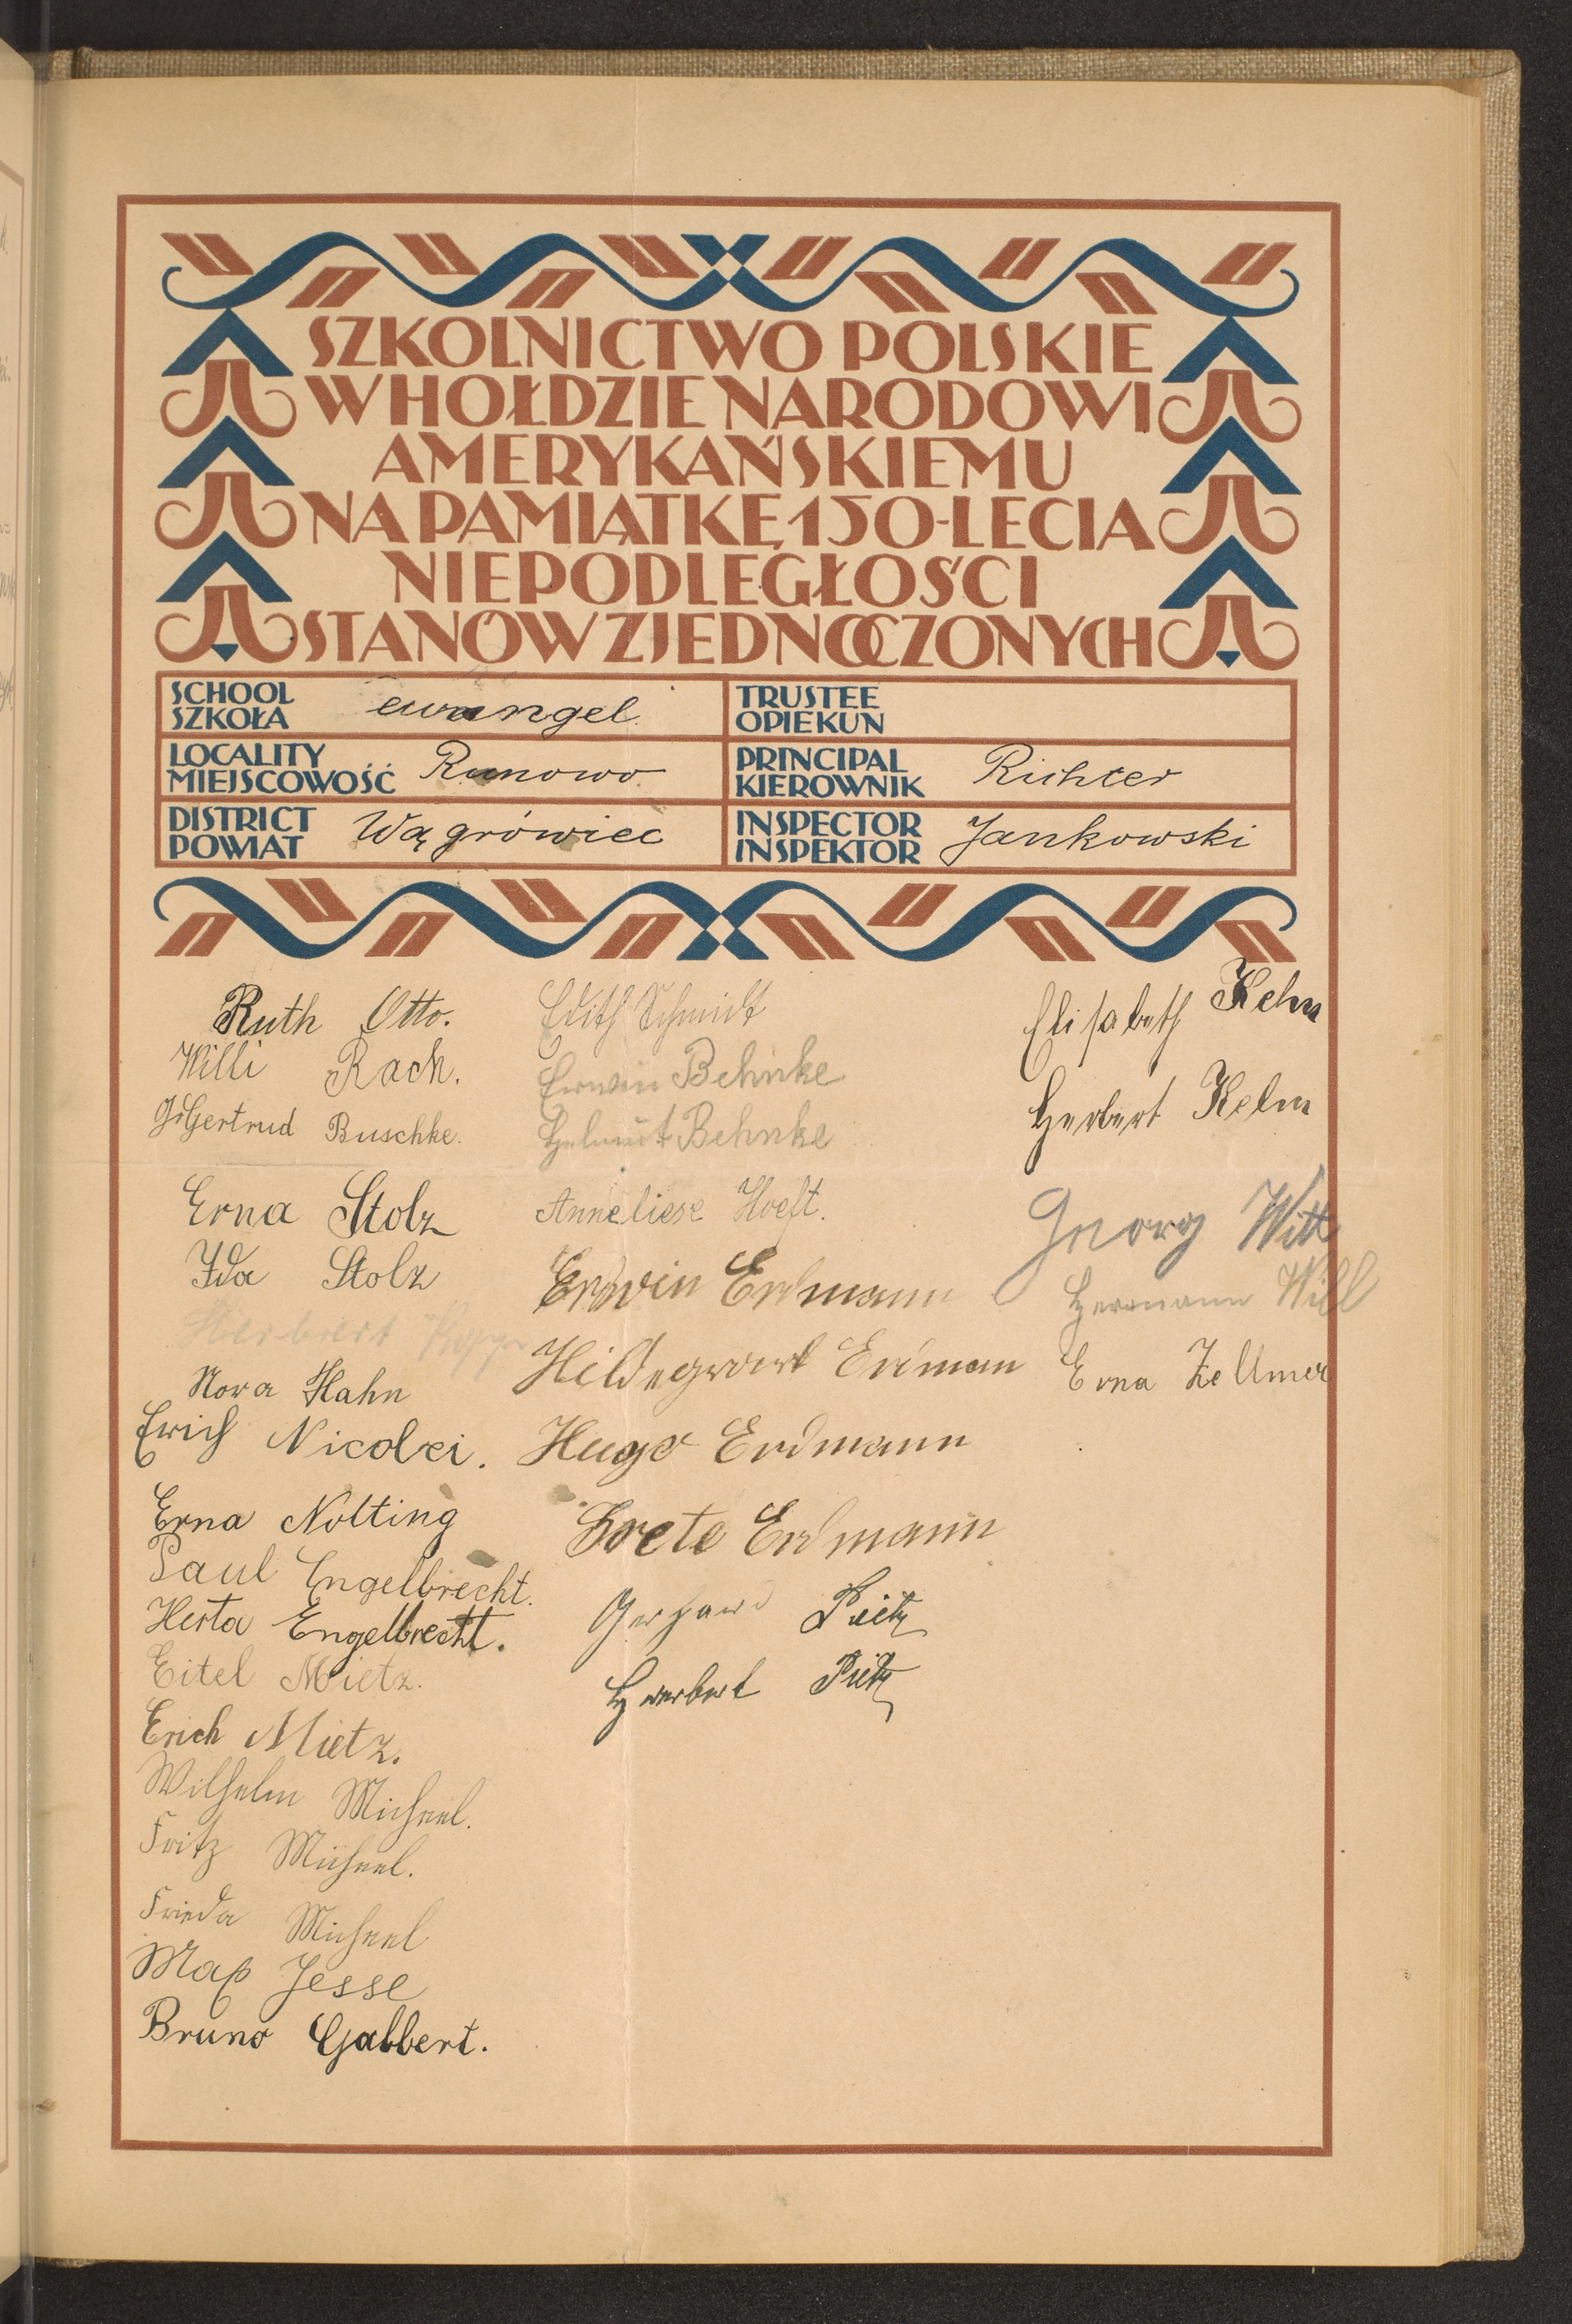 SZKOLNICTWO POLSKIE
W HOŁDZIE NARODOWI
AMERYKAŃSKIEMU
NA PAMIĄTKĘ 150-LECIA
NIEPODLEGŁOŚCI
STANÓW ZJEDNOCZONYCH
SCHOOL
SZKOŁA ewangel.
TRUSTEE
OPIEKUN
LOCALITY
MIEJSCOWOŚĆ Runowo
PRINCIPAL
KIEROWNIK Richter
DISTRICT
POWIAT Wągrówiec
INSPECTOR
INSPEKTOR Jankowski
Ruth Otto.
Willi Rach.
Gertrud Buschke.
Erna Stolz
Ida Stolz
Herbert
Nora Hahn
Erich Nicolei.
Erna Nolting
Paul Engelbrecht.
Herta Engelbrecht.
Eitel Mietz.
Erich Mietz.
Wilhelm Michael.
Fritz Michael.
Frieda Michael
Max Jesse
Bruno Gabbert.
Edith Schmidt
Erwin Behnke
Helmut Behnke
Anneliese Hoeft.
Erwin Erdmann
Hildegard Erdman
Hugo Erdmann
Grete Erdmann
Gerhard Pietz
Herbert Pietz
Elisabeth Kelm
Herbert Kelm
Georg Witt
Hermann Will
Erna Zellmer